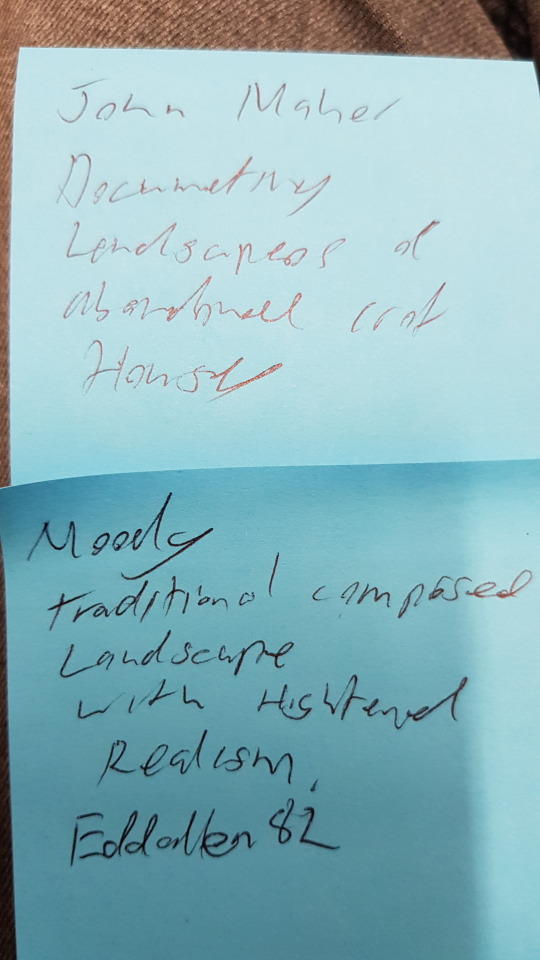 John Maher
Documetry
Landscapess of
abandoned croft
Houses
Moody
traditional composed
Landscape
with Hightened
Realism.
Eddallen82